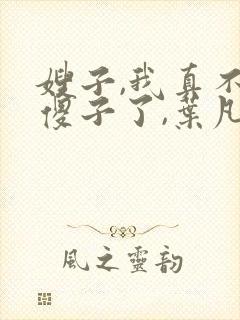 嫂子,我真不
傻子了,葉凡
風之靈韵